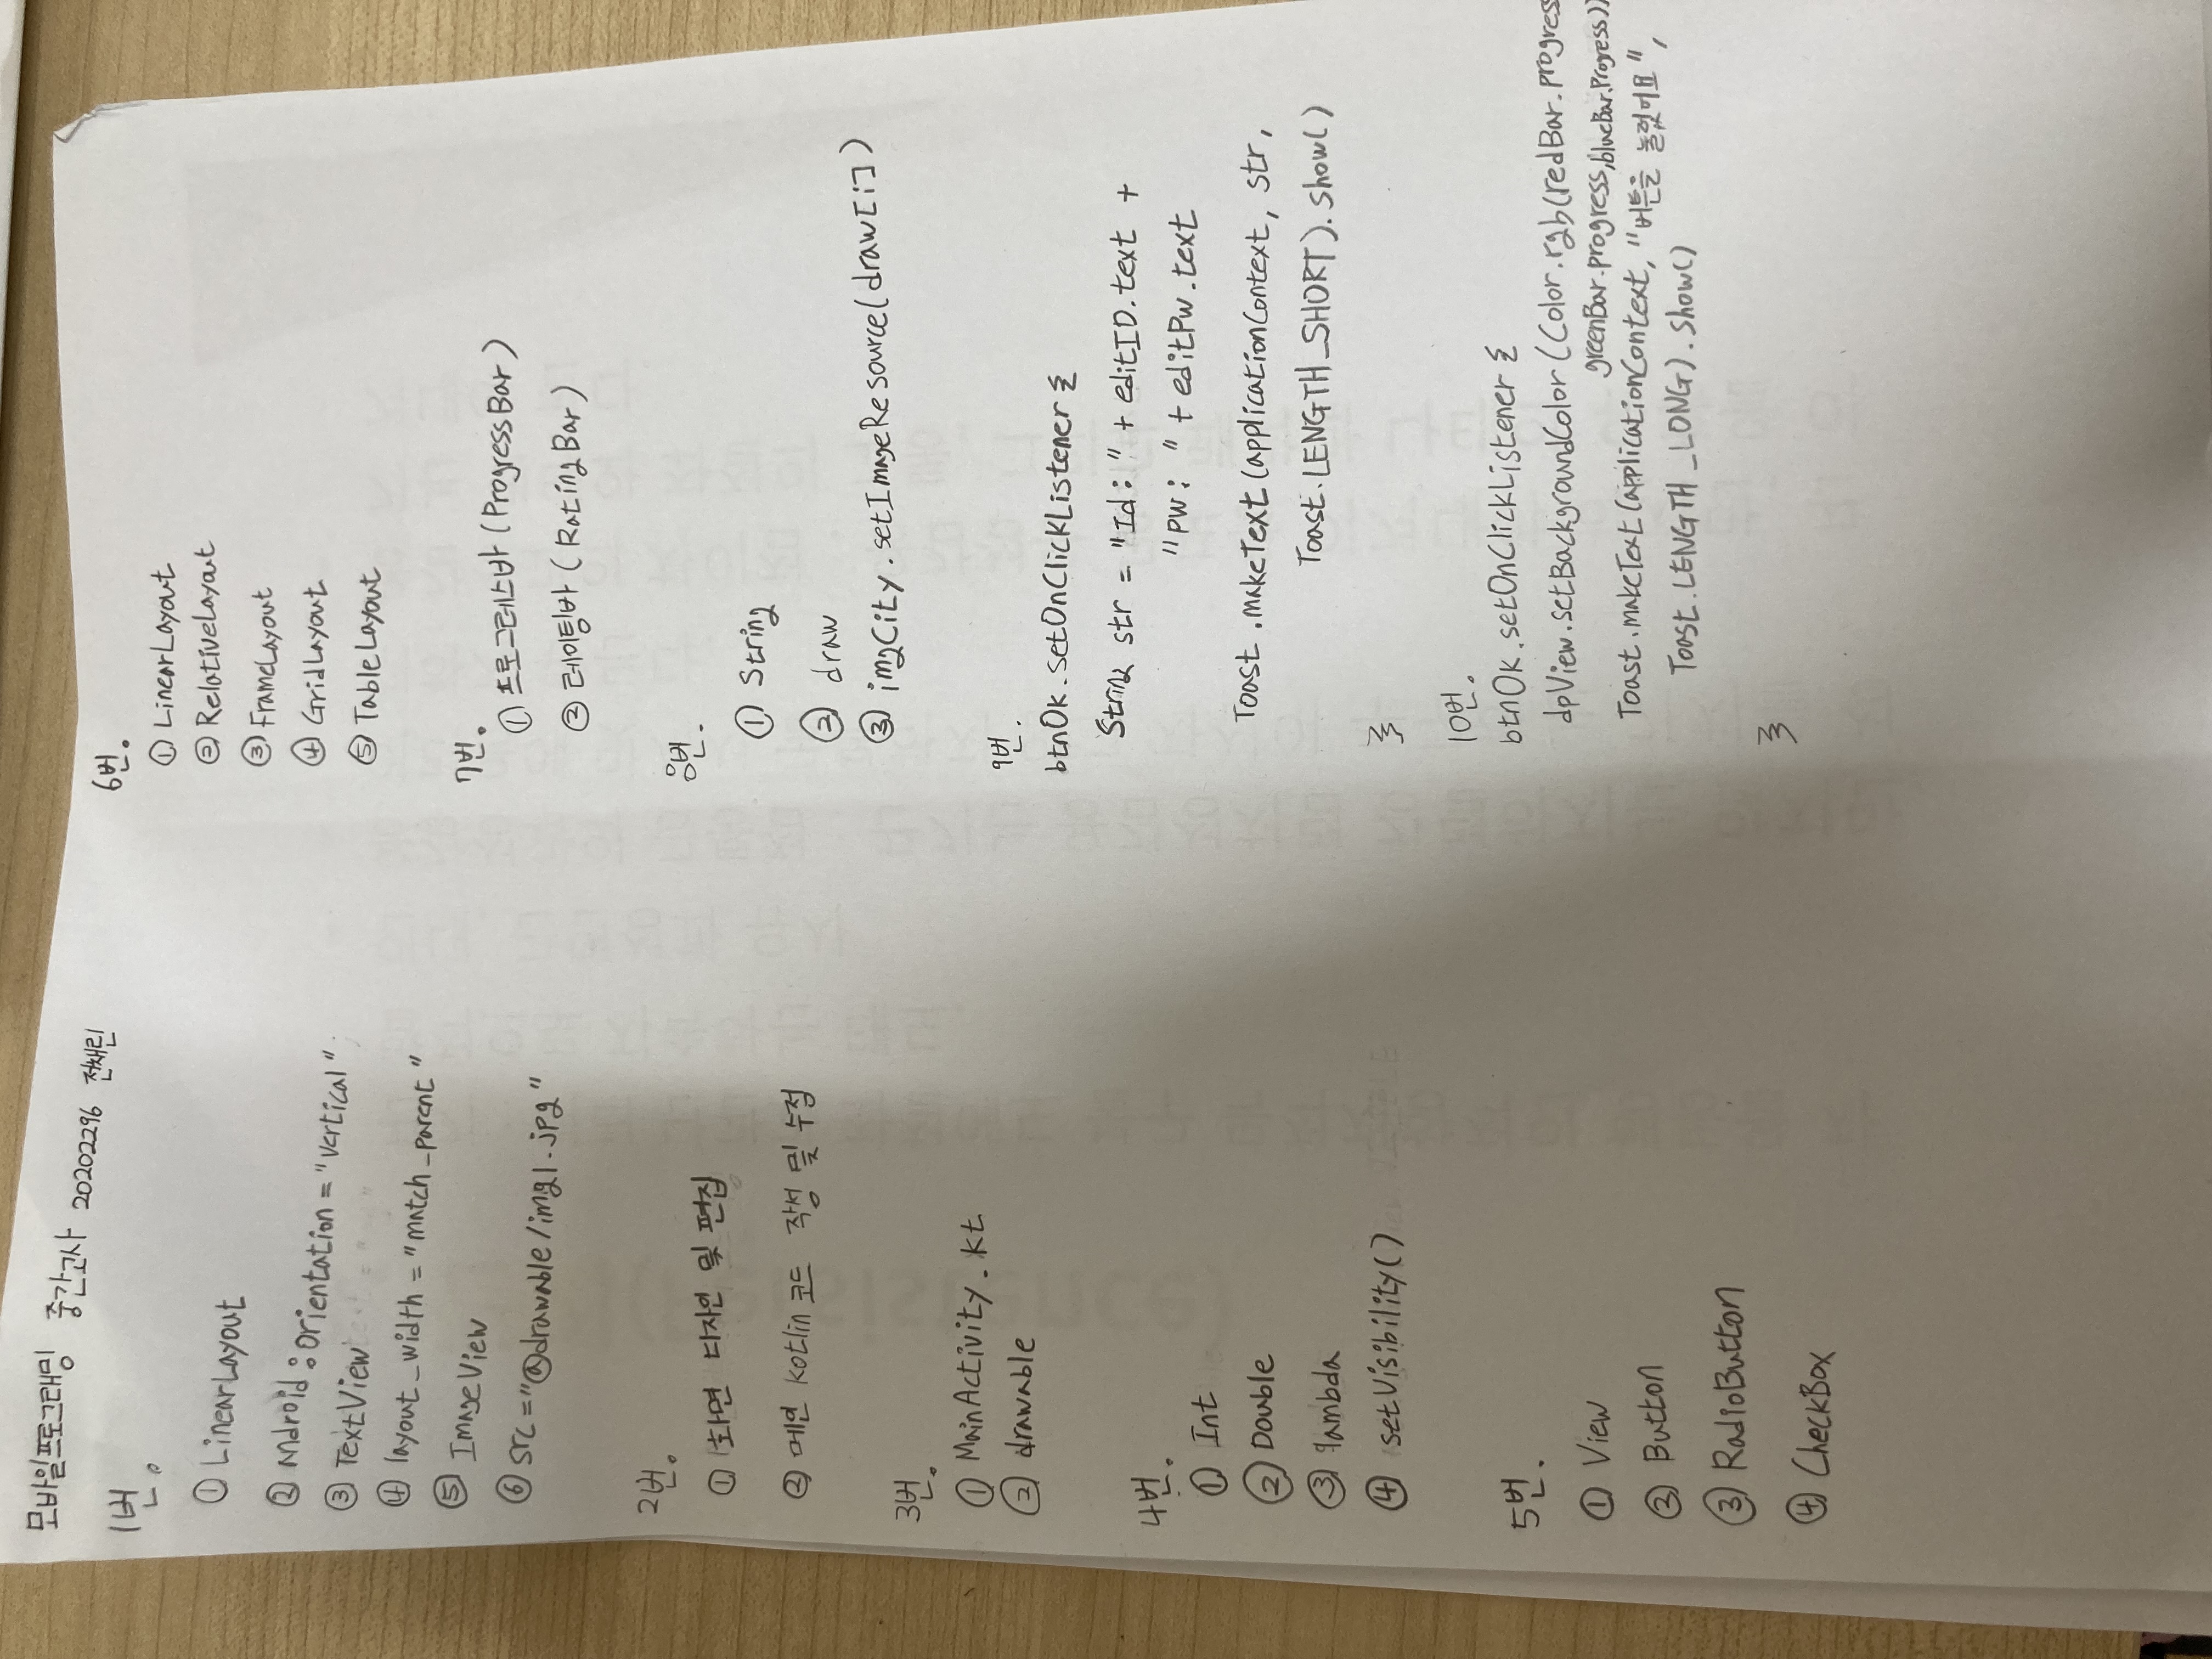 모바일프로그래밍 중간고사 20202296 전채린
1번.
① LinearLayout
② Android:orientation="vertical"
③ TextView
④ layout_width="match_parent"
⑤ ImageView
⑥ src="@drawable/img1.jpg"
2번.
① 화면 디자인 및 편집
② 메인 kotlin 코드 작성 및 수정
3번.
① MainActivity.kt
② drawable
4번.
① Int
② Double
③ lambda
④ setVisibility()
5번.
① View
② Button
③ RadioButton
④ CheckBox
6번.
① LinearLayout
② RelativeLayout
③ FrameLayout
④ GridLayout
⑤ TableLayout
7번.
① 프로그레스바 (ProgressBar)
② 레이팅바 (RatingBar)
8번.
① String
② draw
③ imgCity.setImageResource(draw[i])
9번.
btnOk.setOnClickListener {
String str = "Id: " + editID.text +
"pw: " + editPw.text
Toast.makeText(applicationContext, str,
Toast.LENGTH_SHORT).show()
}
10번.
btnOk.setOnClickListener {
dpView.setBackgroundColor (Color.rgb(redBar.progress
greenBar.progress,blueBar.Progress))
Toast.makeText(applicationContext, "버튼을 눌렀어요",
Toast.LENGTH_LONG).show()
}